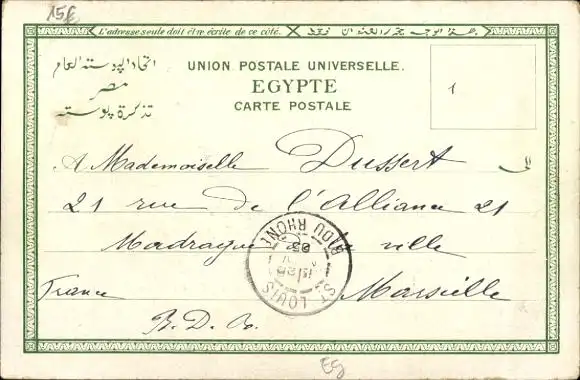 15€
L'adresse seule doit être écrite de ce côté.
اتحاد البوسته العام
مصر
تذكرة بوسته
UNION POSTALE UNIVERSELLE.
EGYPTE
CARTE POSTALE
1
A Mademoiselle Dussert
الى
21 rue de l'Alliance 21
Madrague ville
France Marseille
B. D. R.
ST LOUIS
B. DU RHONE
03
Eg